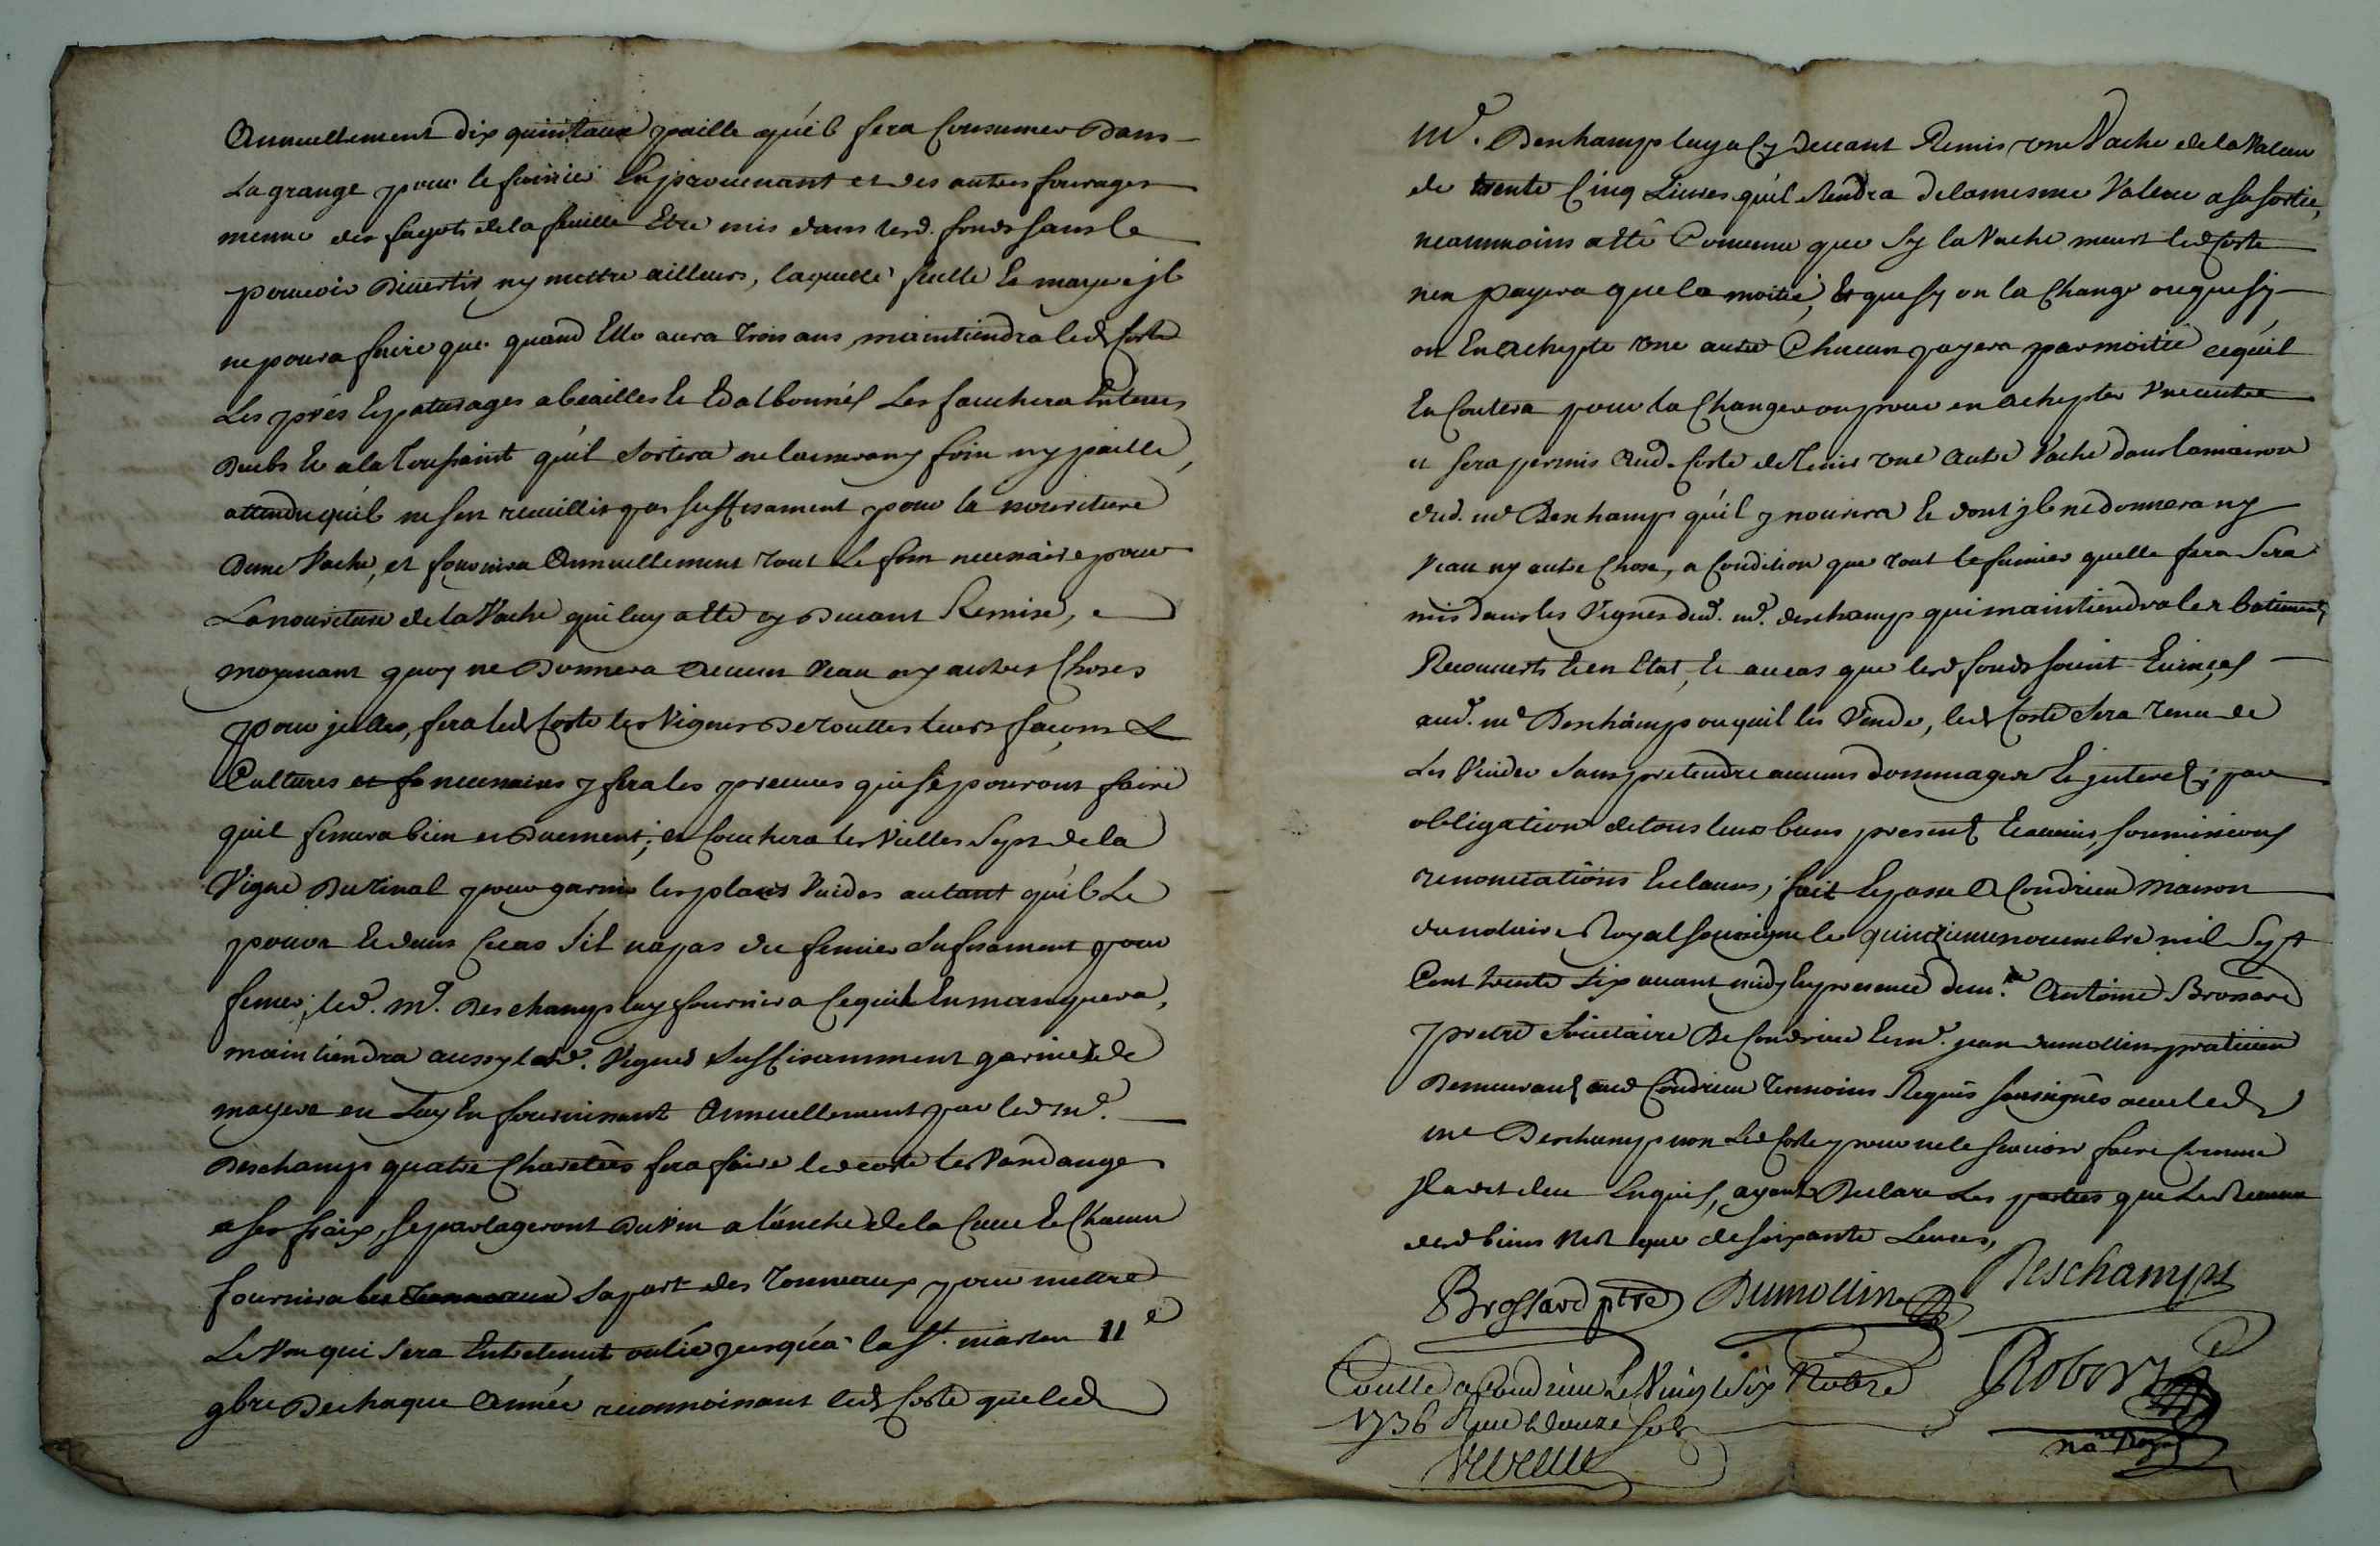 Annuellement dix quintaux paille qu'il fera Consumer Dans
La grange pour le fumier En provenant et des autres fourages
mesme des fagots de la feuille Etre mis dans lesd. fonds sans le
pouvoir Divertir ny mettre ailleurs, laquelle feulle Et mayere jl
ne poura faire que quand Elle aura trois ans, maintiendra led Coste
Les prés Et paturages Les fauchera En temps
Deubs Et a la Toussaint qu'il Sortira ne laissera ny foin ny paille,
attendu qu'il ne s'en recuillit pas suffisament pour la nouriture
Dune Vache, et fournira Annuellement tout Le foin necessaire pour
La nouriture de la Vache qui luy a esté cy Devant Remise, e
moyenant quoy ne Donnera Aucun Veau ny autres Choses
pour jcelles, fera led Coste les Vignes De touttes leurs façons &
Cultures et fa necessaires y fera les preuves qui se pouront faire
quil femera bien et Duement; et Couchera les Vielles Seps de la
Vigne Du Tinal pour garnir les places Vuides autant qu'il Le
poura Et dans Ce cas S'il n'a pas du femier Sufisament pour
femer, led. mr. Deschamps luy fournira Ce qui luy En manquera,
maintiendra aussy lesd. Vignes Suffisamment garnies de
mayere en Luy En fournissant Annuellement par led mr.
Deschamps quatre Charetées fera faire led coste les Vandanges
a ses fraix, Se partageront Du Vin a l'anche de la Cuve Et Chacun
fournira les Tonneaux Sa part des Tonneaux pour mettre
Le Vin qui Sera Entretenut oulié jusqu'a la St. martin 11e
9bre De chaque Année reconnoissant led Coste que led
mr. Deschamps luy a Cy Devant Remis une Vache de la Valeur
de trente Cinq Livres qu'il Rendra de la mesme Valeur a sa sortie,
neanmoins a esté Convenu que Sy la Vache meurt led Coste
nen payera que la moitié, Et que sy on la Change ou que sy
on En achepte une autre Chacun payera par moitié ce qu'il
En Coutera pour la Changer ou pour en achepter Une autre
et sera permis aud. Coste de Tenir une Autre Vache dans la maison
dud. mr Deschamps qu'il y nourira Et dont jl ne donnera ny
Veau ny autre Chose, a Condition que tout le fumier quelle fera Sera
mis dans les Vignes dud. mr. deschamps qui maintiendra les batiments
Recouverts Et en Etat, Et au cas que lesd fonds soient Evincés
aud. mr Deschamps ou quil les Vende, led Coste Sera tenu de
Les Vuider Sans pretendre aucuns dommages Et jnterets; par
obligation de tous leurs biens presents Et avenir, soumissions
renonciations Et clauses, fait Et passé A Condrieu maison
du notaire Royal soussigné le quinzieme novembre mil Sept
Cent trente Six avant midy En presence de mre Antoine Brossard
pretre Societaire De Condrieu Et mr. jean dumollin praticien
Demeurants aud Condrieu Temoins Requis soussignés avec led
mr Deschamps non Led Coste pour ne le sçavoir faire Comme
jl a dit de ce Enquis, ayant Declaré Les parties que Le Revenu
desd biens n'est que de soixante Livres,
Brossard ptre Dumollin Deschamps
Coullé a Condrieu Le Vingt Six Nobre Robert
1736 Reçu douze sols
nore Royal